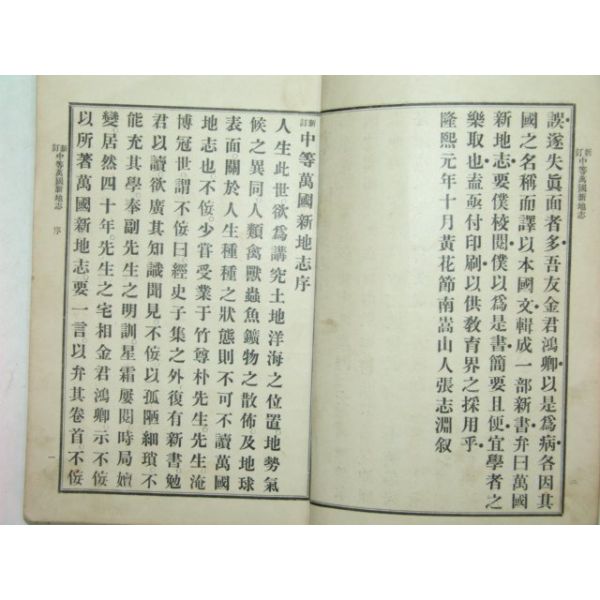 新訂中等萬國新地志
誤遂失眞面者多吾友金君鴻卿以是爲病各因其
國之名稱而譯以本國文輯成一部新書弁曰萬國
新地志要僕校閱僕以爲是書簡要且便宜學者之
樂取也盍亟付印刷以供敎育界之採用乎
隆熙元年十月黃花節南嵩山人張志淵叙
新訂中等萬國新地志序
人生此世欲爲講究土地洋海之位置地勢氣
候之異同人類禽獸蟲魚鑛物之散佈及地球
表面關於人生種種之狀態則不可不讀萬國
地志也不侫少嘗受業于竹尊朴先生先生淹
博冠世謂不侫曰經史子集之外復有新書勉
君以讀欲廣其知識聞見不侫以孤陋細瑣不
能充其學奉副先生之明訓星霜屢閱時局嬗
變居然四十年先生之宅相金君鴻卿示不侫
以所著萬國新地志要一言以弁其卷首不侫
新訂中等萬國新地志 序
一